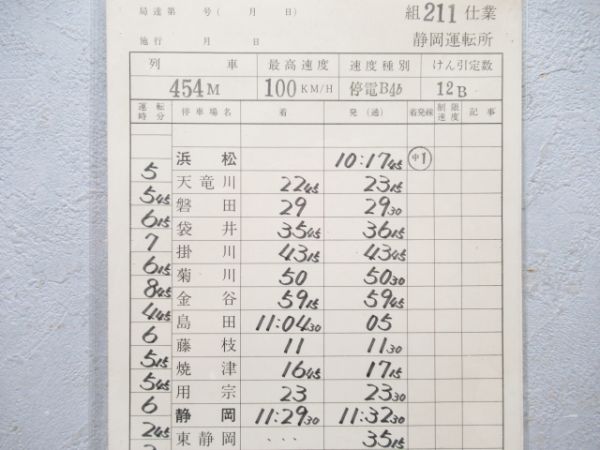 局達第 号( 月 日) 組211仕業
施行 月 日 静岡運転所
列車 最高速度 速度種別 けん引定数
454M 100KM/H 停電B46 12B
運転時分 停車場名 着 発(通) 着発線 制限速度 記事
浜松 10:1745 中1
5
天竜川 2245 2315
545
磐田 29 2930
615
袋井 3545 3615
7
掛川 4315 4345
615
菊川 50 5030
845
金谷 5915 5945
445
島田 11:0430 05
6
藤枝 11 1130
515
焼津 1645 1715
545
用宗 23 2330
6
静岡 11:2930 11:3230
245
東静岡 ... 3515